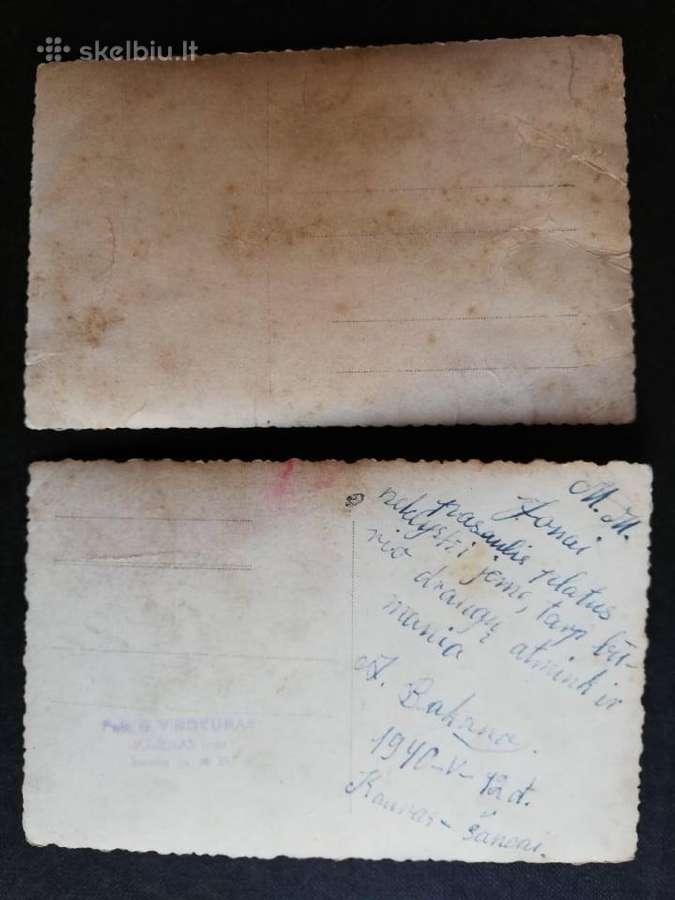 skelbiu.lt
M. M.
Jonai
pasaulis platus
neklysti jeme, tarp bū-
rio draugų atmink ir
mania
A. Bakano.
1940-V-12d.
Kaunas - Šančai.